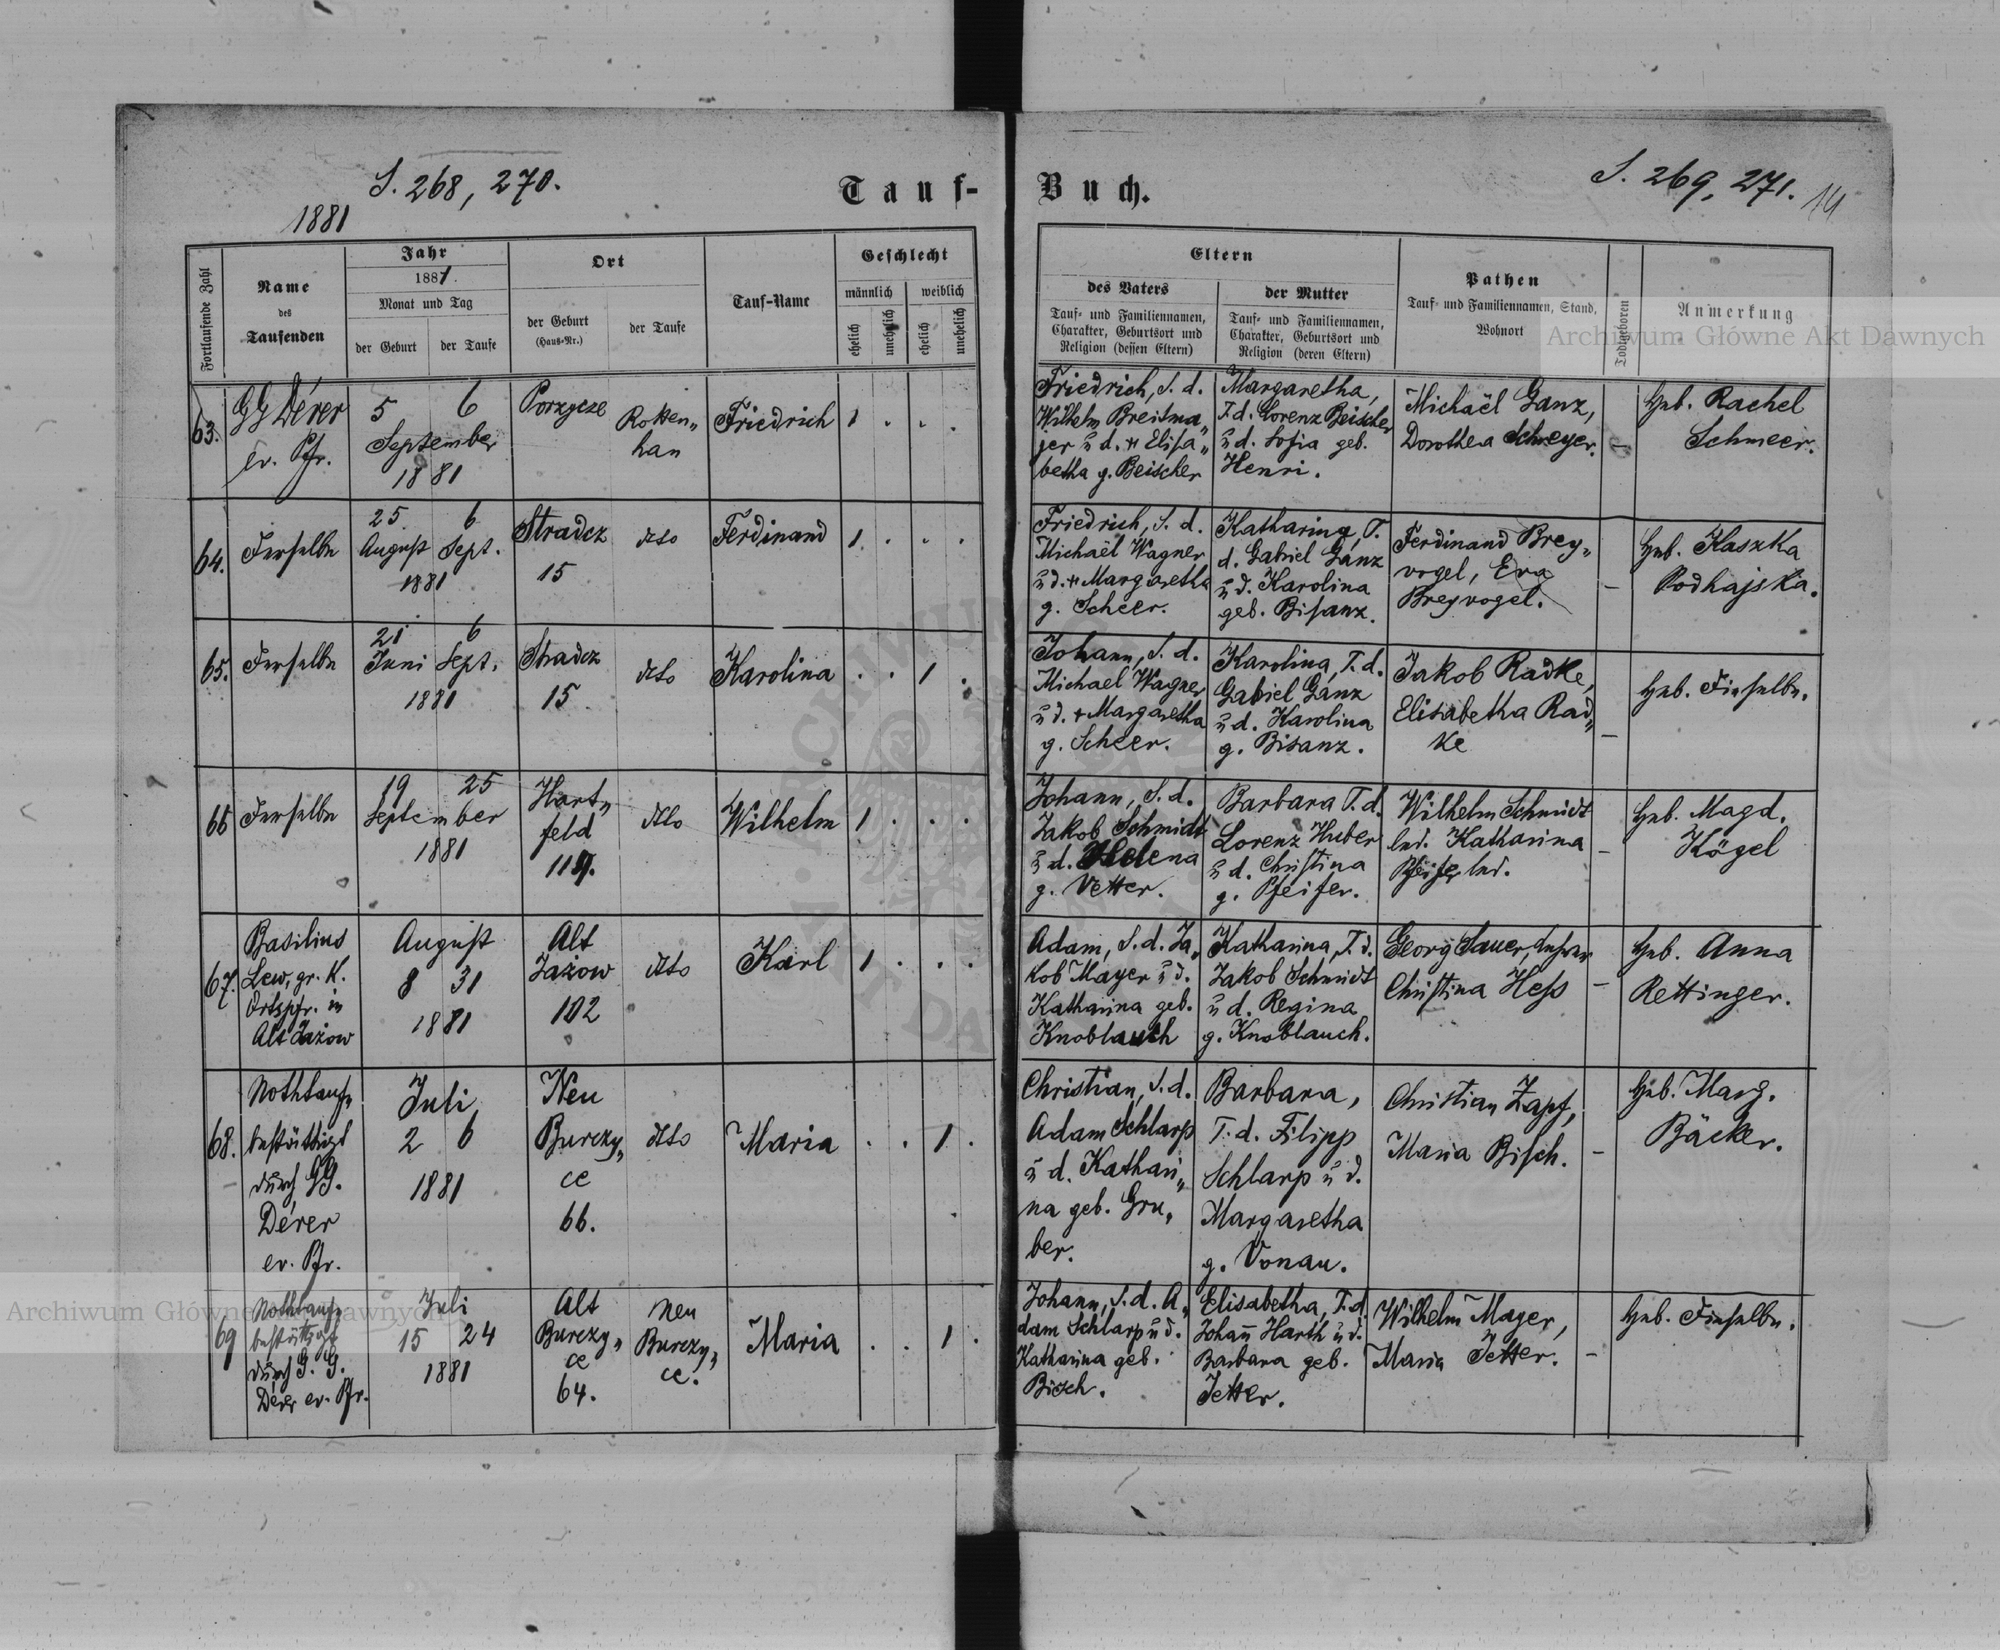 S. 268, 270.
Tauf-
Buch.
S. 269, 271.
14
1881
Fortlaufende Zahl
Name
des
Taufenden
Jahr
1881.
Monat und Tag
der Geburt
der Taufe
Ort
der Geburt
(Haus-Nr.)
der Taufe
Tauf-Name
Geschlecht
männlich
weiblich
ehelich
unehelich
ehelich
unehelich
Eltern
des Vaters
Tauf- und Familiennamen,
Charakter, Geburtsort und
Religion (dessen Eltern)
der Mutter
Tauf- und Familiennamen,
Charakter, Geburtsort und
Religion (deren Eltern)
Pathen
Tauf- und Familiennamen, Stand,
Wohnort
Todtgeboren
Anmerkung
Archiwum Główne Akt Dawnych
63.
GG Dérer
ev. Pfr.
5 6
September
1881
Porzycze
Rotten„
han
Friedrich
1 . . .
Friedrich, S. d.
Wilhelm Breitma„
jer ŭ d. + Elisa„
betha g. Beischer
Margaretha,
T. d. Lorenz Beischer
ŭ d. Sofia geb.
Henri.
Michaël Ganz,
Dorothea Schreyer.
Heb. Rachel
Schmeer.
64.
Derselbe
25. 6
August Sept.
1881
Stradcz
15
dto
Ferdinand
1 . . .
Friedrich, S. d.
Michaël Wagner
ŭ d. + Margaretha
g. Scheer.
Katharina, T.
d. Gabriel Ganz
ŭ d. Karolina
geb. Bisanz.
Ferdinand Brey„
vogel, Eva
Breyvogel.
–
Heb. Kaszka
Podhajska.
65.
Derselbe
21 6
Juni Sept.
1881
Stradcz
15
dto
Karolina
. . 1 .
Johann, S. d.
Michael Wagner
ŭ d. + Margaretha
g. Scheer.
Karolina, T. d.
Gabriel Ganz
ŭ d. Karolina
g. Bisanz.
Jakob Radke,
Elisabetha Rad„
ke
–
Heb. Dieselbe.
66
Derselbe
19 25
September
1881
Hart„
feld
119.
dto
Wilhelm
1 . . .
Johann, S. d.
Jakob Schmidt
ŭ d. Helena
g. Vetter.
Barbara T. d.
Lorenz Huber
ŭ d. Christina
g. Pfeifer.
Wilhelm Schmidt
led. Katharina
Pfeifer led.
–
Heb. Magd.
Kögel
67.
Basilius
Lew, gr. k.
Ortspfr. in
Alt Jażow
August
8 31
1881
Alt
Jażow
102
dto
Karl
1 . . .
Adam, S. d. Ja„
kob Mayer ŭ d.
Katharina geb.
Knoblauch
Katharina, T. d.
Jakob Schmidt
ŭ d. Regina
g. Knoblauch.
Georg Sauer, Lehrer
Christina Hess
–
Heb. Anna
Rettinger.
68.
Nothtaufe
bestättigt
durch GG.
Dérer
ev. Pfr.
Juli
2 6
1881
Neu
Burczy„
ce
66.
dto
Maria
. . 1 .
Christian, S. d.
Adam Schlarp
ŭ d. Kathari„
na geb. Gru„
ber.
Barbara,
T. d. Filipp
Schlarp ŭ d.
Margaretha
g. Vonau.
Christian Zapf,
Maria Bisch.
–
Heb. Marg.
Bäcker.
69
Nothtaufe
bestättigt
durch G. G.
Dérer ev. Pfr.
Juli
15 24
1881
Alt
Burczy„
ce
64.
Neu
Burczy„
ce.
Maria
. . 1 .
Johann, S. d. A„
dam Schlarp ŭ d.
Katharina geb.
Bisch.
Elisabetha, T. d.
Johañ Harth ŭ d.
Barbara geb.
Jetter.
Wilhelm Mayer,
Maria Jetter.
–
Heb. Dieselbe.
Archiwum Główne Akt Dawnych